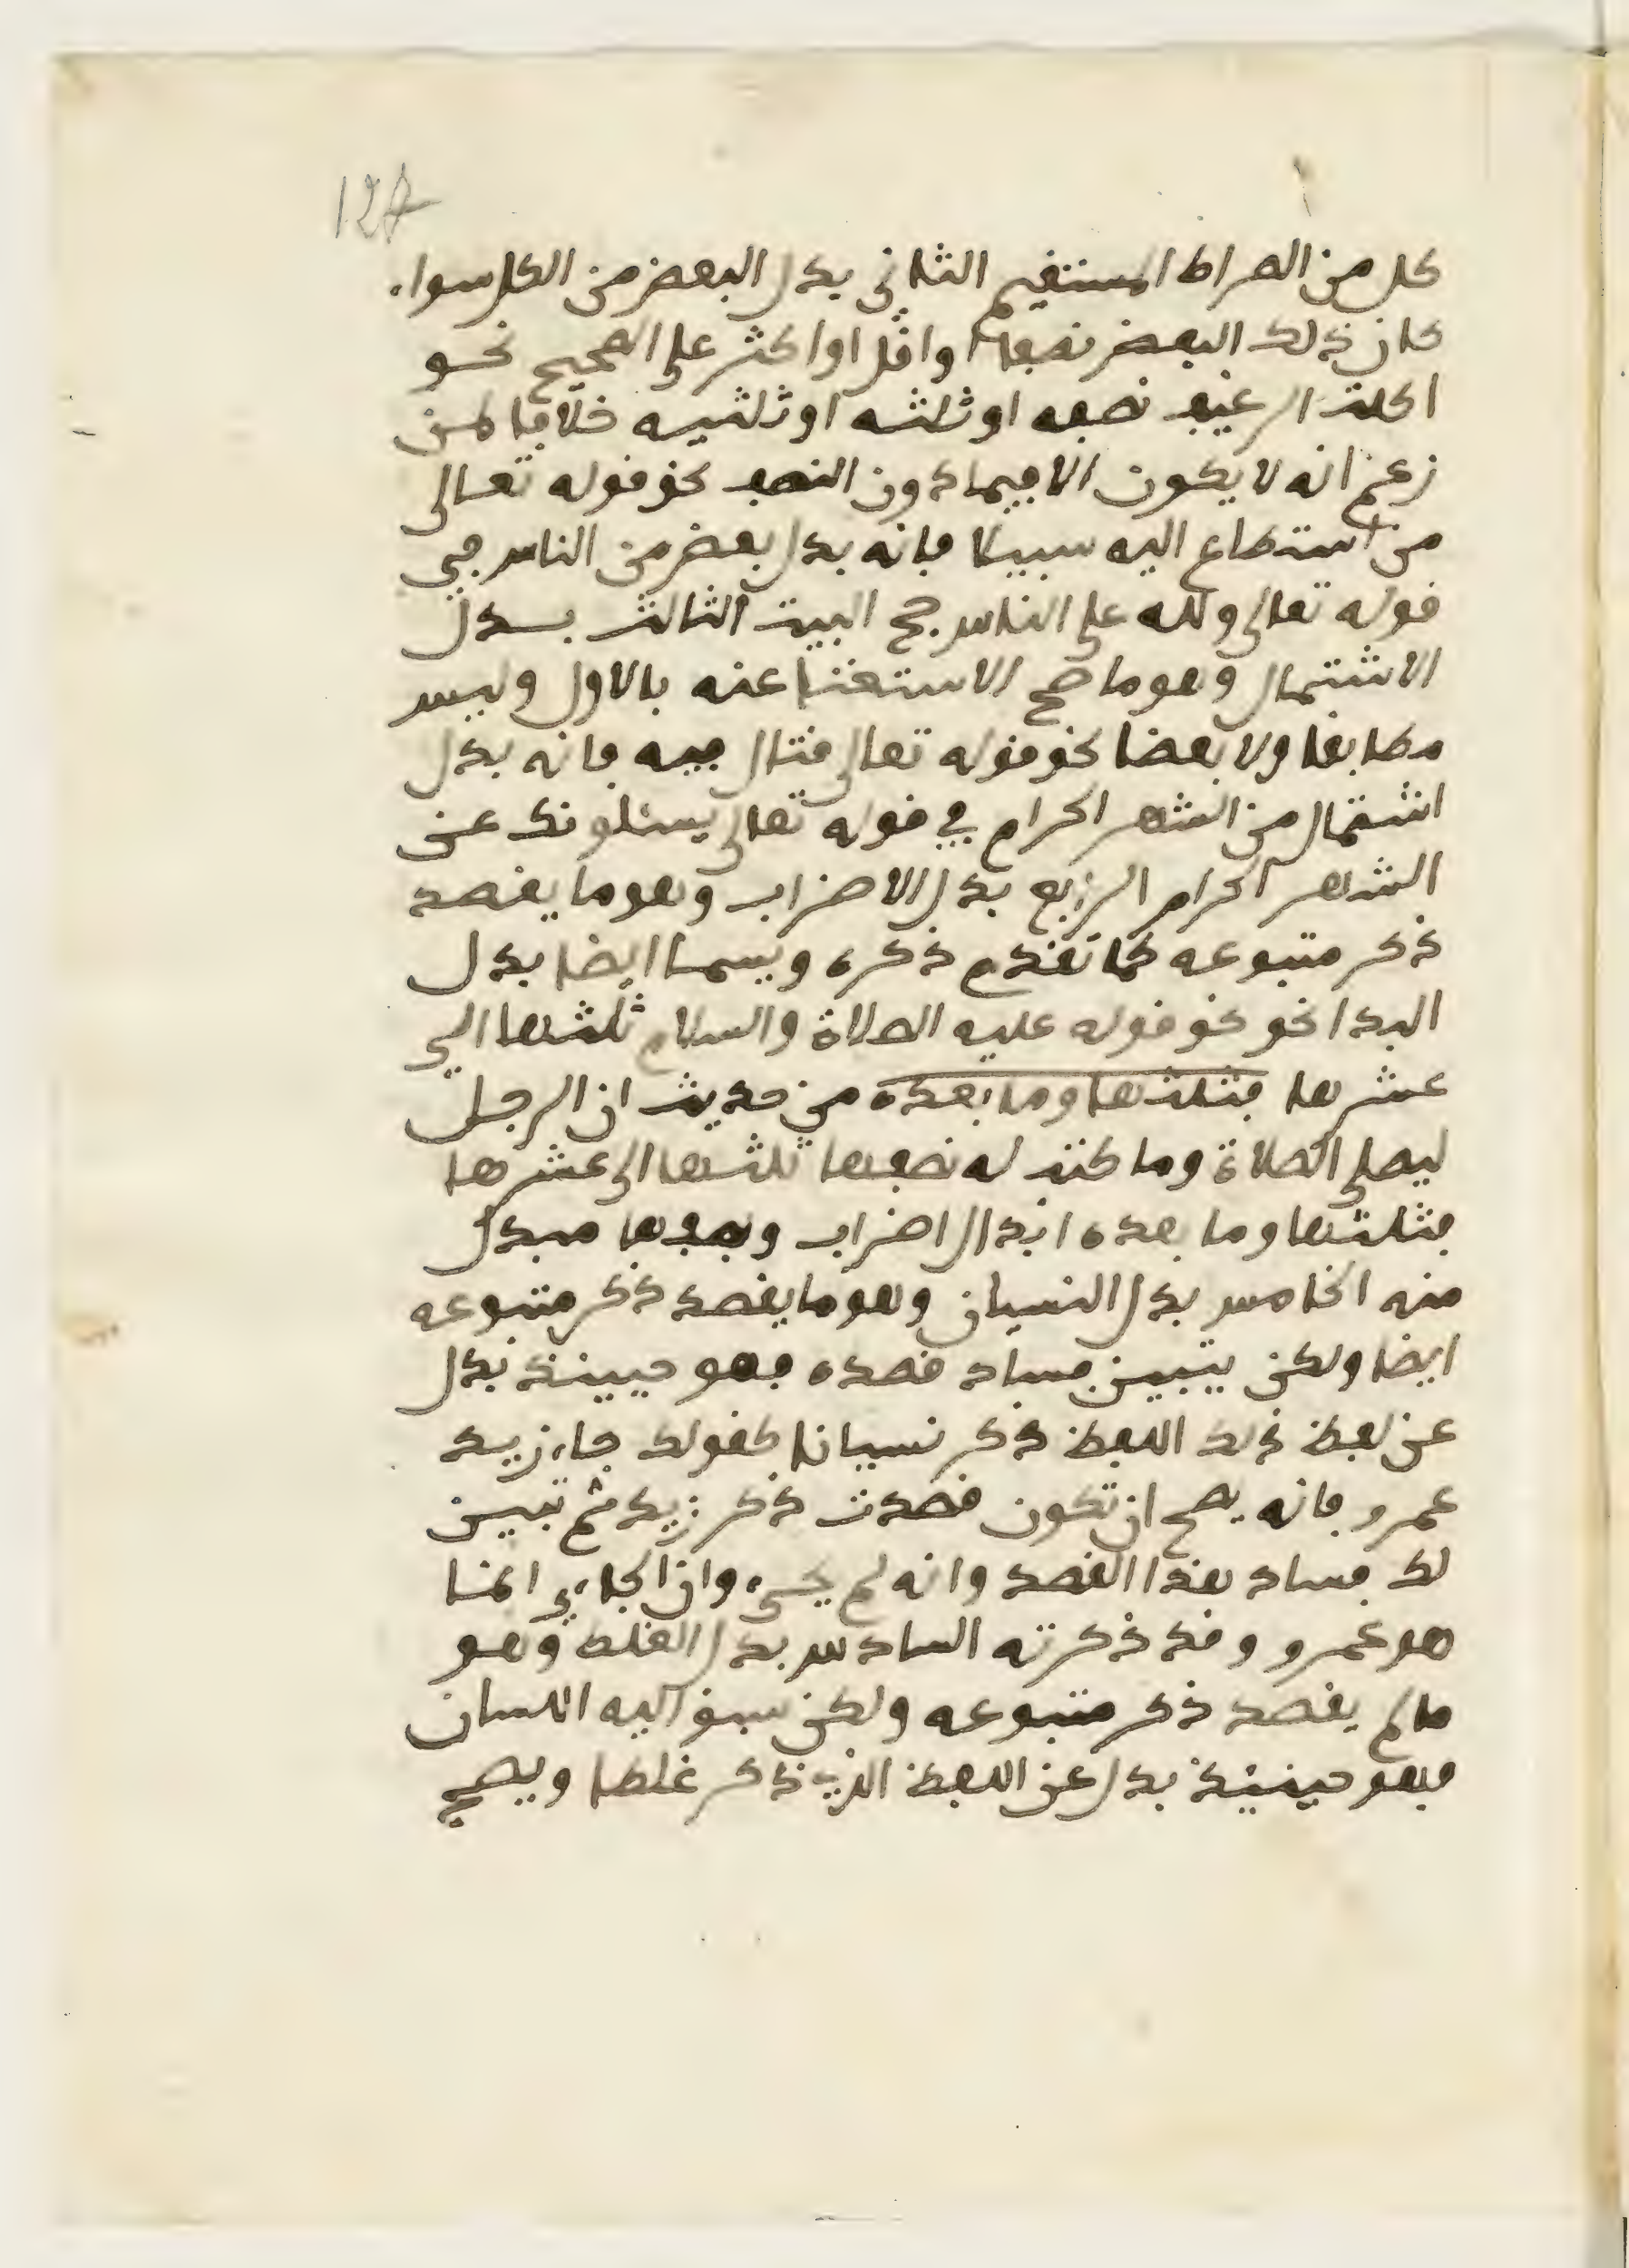 127
كل من الصراط المستقيم الثاني بدل البعض من الكل سواء
كان ذلك البعض نصفا او اقل او اكثر على الصحيح نحو
اكلت الرغيف نصفه او ثلثه او ثلثيه خلافا لمن
زعم انه لا يكون الا فيما دون النصف نحو قوله تعالى
من استطاع اليه سبيلا فانه بدل بعض من الناس في
قوله تعالى ولله على الناس حج البيت الثالث بدل
الاشتمال وهو ما صح الاستغنا عنه بالاول وليس
مطابقا ولا بعضا نحو قوله تعالى قتال فيه فانه بدل
اشتمال من الشهر الحرام في قوله تعالى يسئلونك عن
الشهر الحرام الرابع بدل الاضراب وهو ما يقصد
ذكر متبوعه كما تقدم ذكره ويسما ايضا بدل
البدا نحو نحو قوله عليه الصلاة والسلام ثلثها الى
عشرها فثلثها وما بعده من حديث ان الرجل
ليصلي الصلاة وما كتب له نصفها ثلثها الى عشرها
فثلثها وما بعده ابدال اضراب ونصفها مبدل
منه الخامس بدل النسيان وهو ما يقصد ذكر متبوعه
ايضا ولكن يتبين فساد قصده فهو حيينئذ بدل
عن لفظ ذلك اللفظ ذكر نسيانا كقولك جاء زيد
عمرو فانه يصح ان تكون قصدت ذكر زيد ثم تبين
لك فساد هذا القصد وانه لم يجيء وان الجاءي انما
هو عمرو وقد ذكرته السادس بدل الغلط وهو
ما لم يقصد ذكر متبوعه ولكن سبق اليه اللسان
فهو حينئذ بدل عن اللفظ الذي ذكر غلطا ويصح